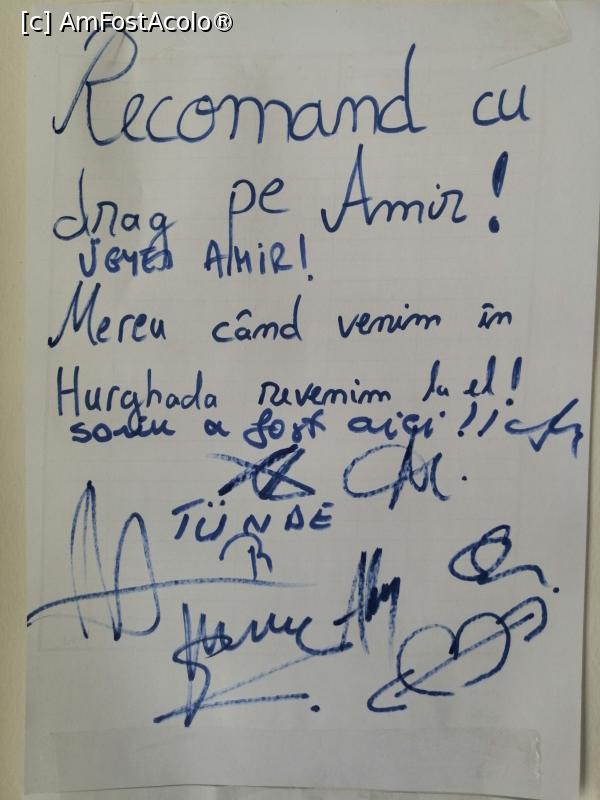 [c] AmFostAcolo®
Recomand cu
drag pe Amir!
ÜGYES AMIR!
Mereu când venim în
Hurghada revenim la el!
sorin a fost aici!!
TÜNDE